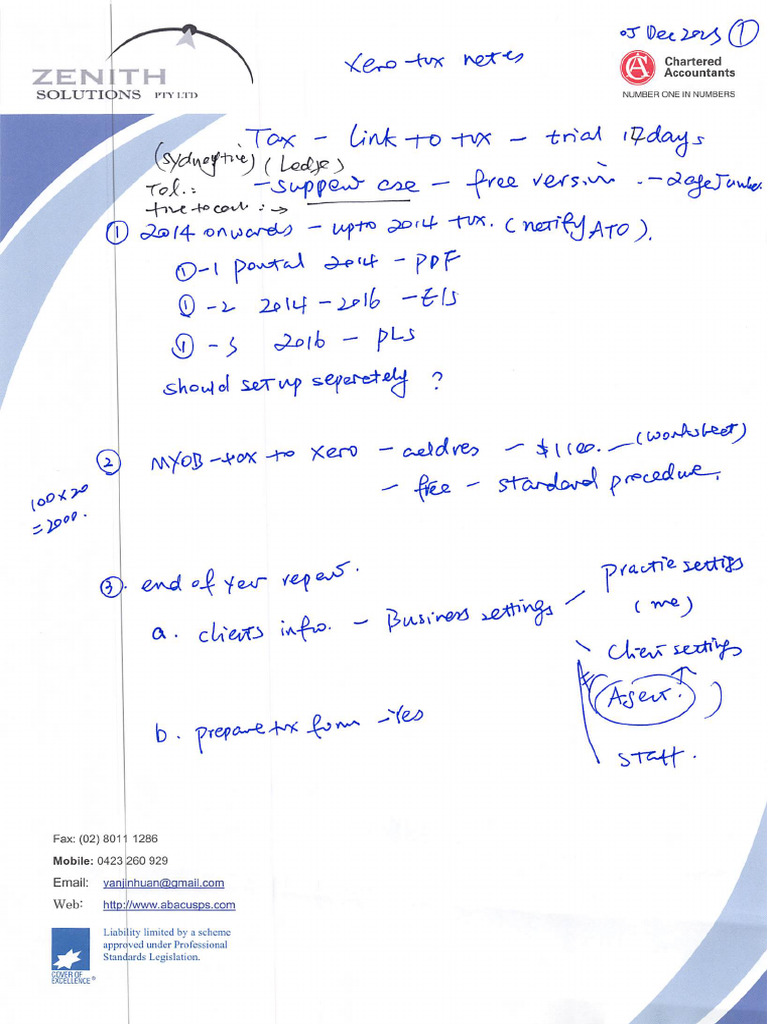 05 Dec 2023 ①
Xero tax notes
ZENITH
SOLUTIONS PTY LTD
Chartered
Accountants
NUMBER ONE IN NUMBERS
Tax - link to tax - trial 14days
(Sydney time) (Ledge)
Tel.: - support case - free version. -
time to call: →
① 2014 onwards - upto 2014 tax. (notify ATO).
①-1 portal 2014 - PDF
①-2 2014-2016 - Els
①-3 2016 - PLS
should set up seperetely ?
② MYOB-tax to Xero - addres - $1100. - (worksheet)
- free - standard procedure.
100 x 20
= 2000.
③. end of year report.
a. clients info. - Business settings - Practie settigs
(me)
Client settings
(Agent.)
Staff.
b. prepare tax form - Yes
Fax: (02) 8011 1286
Mobile: 0423 260 929
Email: yanjinhuan@gmail.com
Web: http://www.abacusps.com
Liability limited by a scheme
approved under Professional
Standards Legislation.
COVER OF
EXCELLENCE®